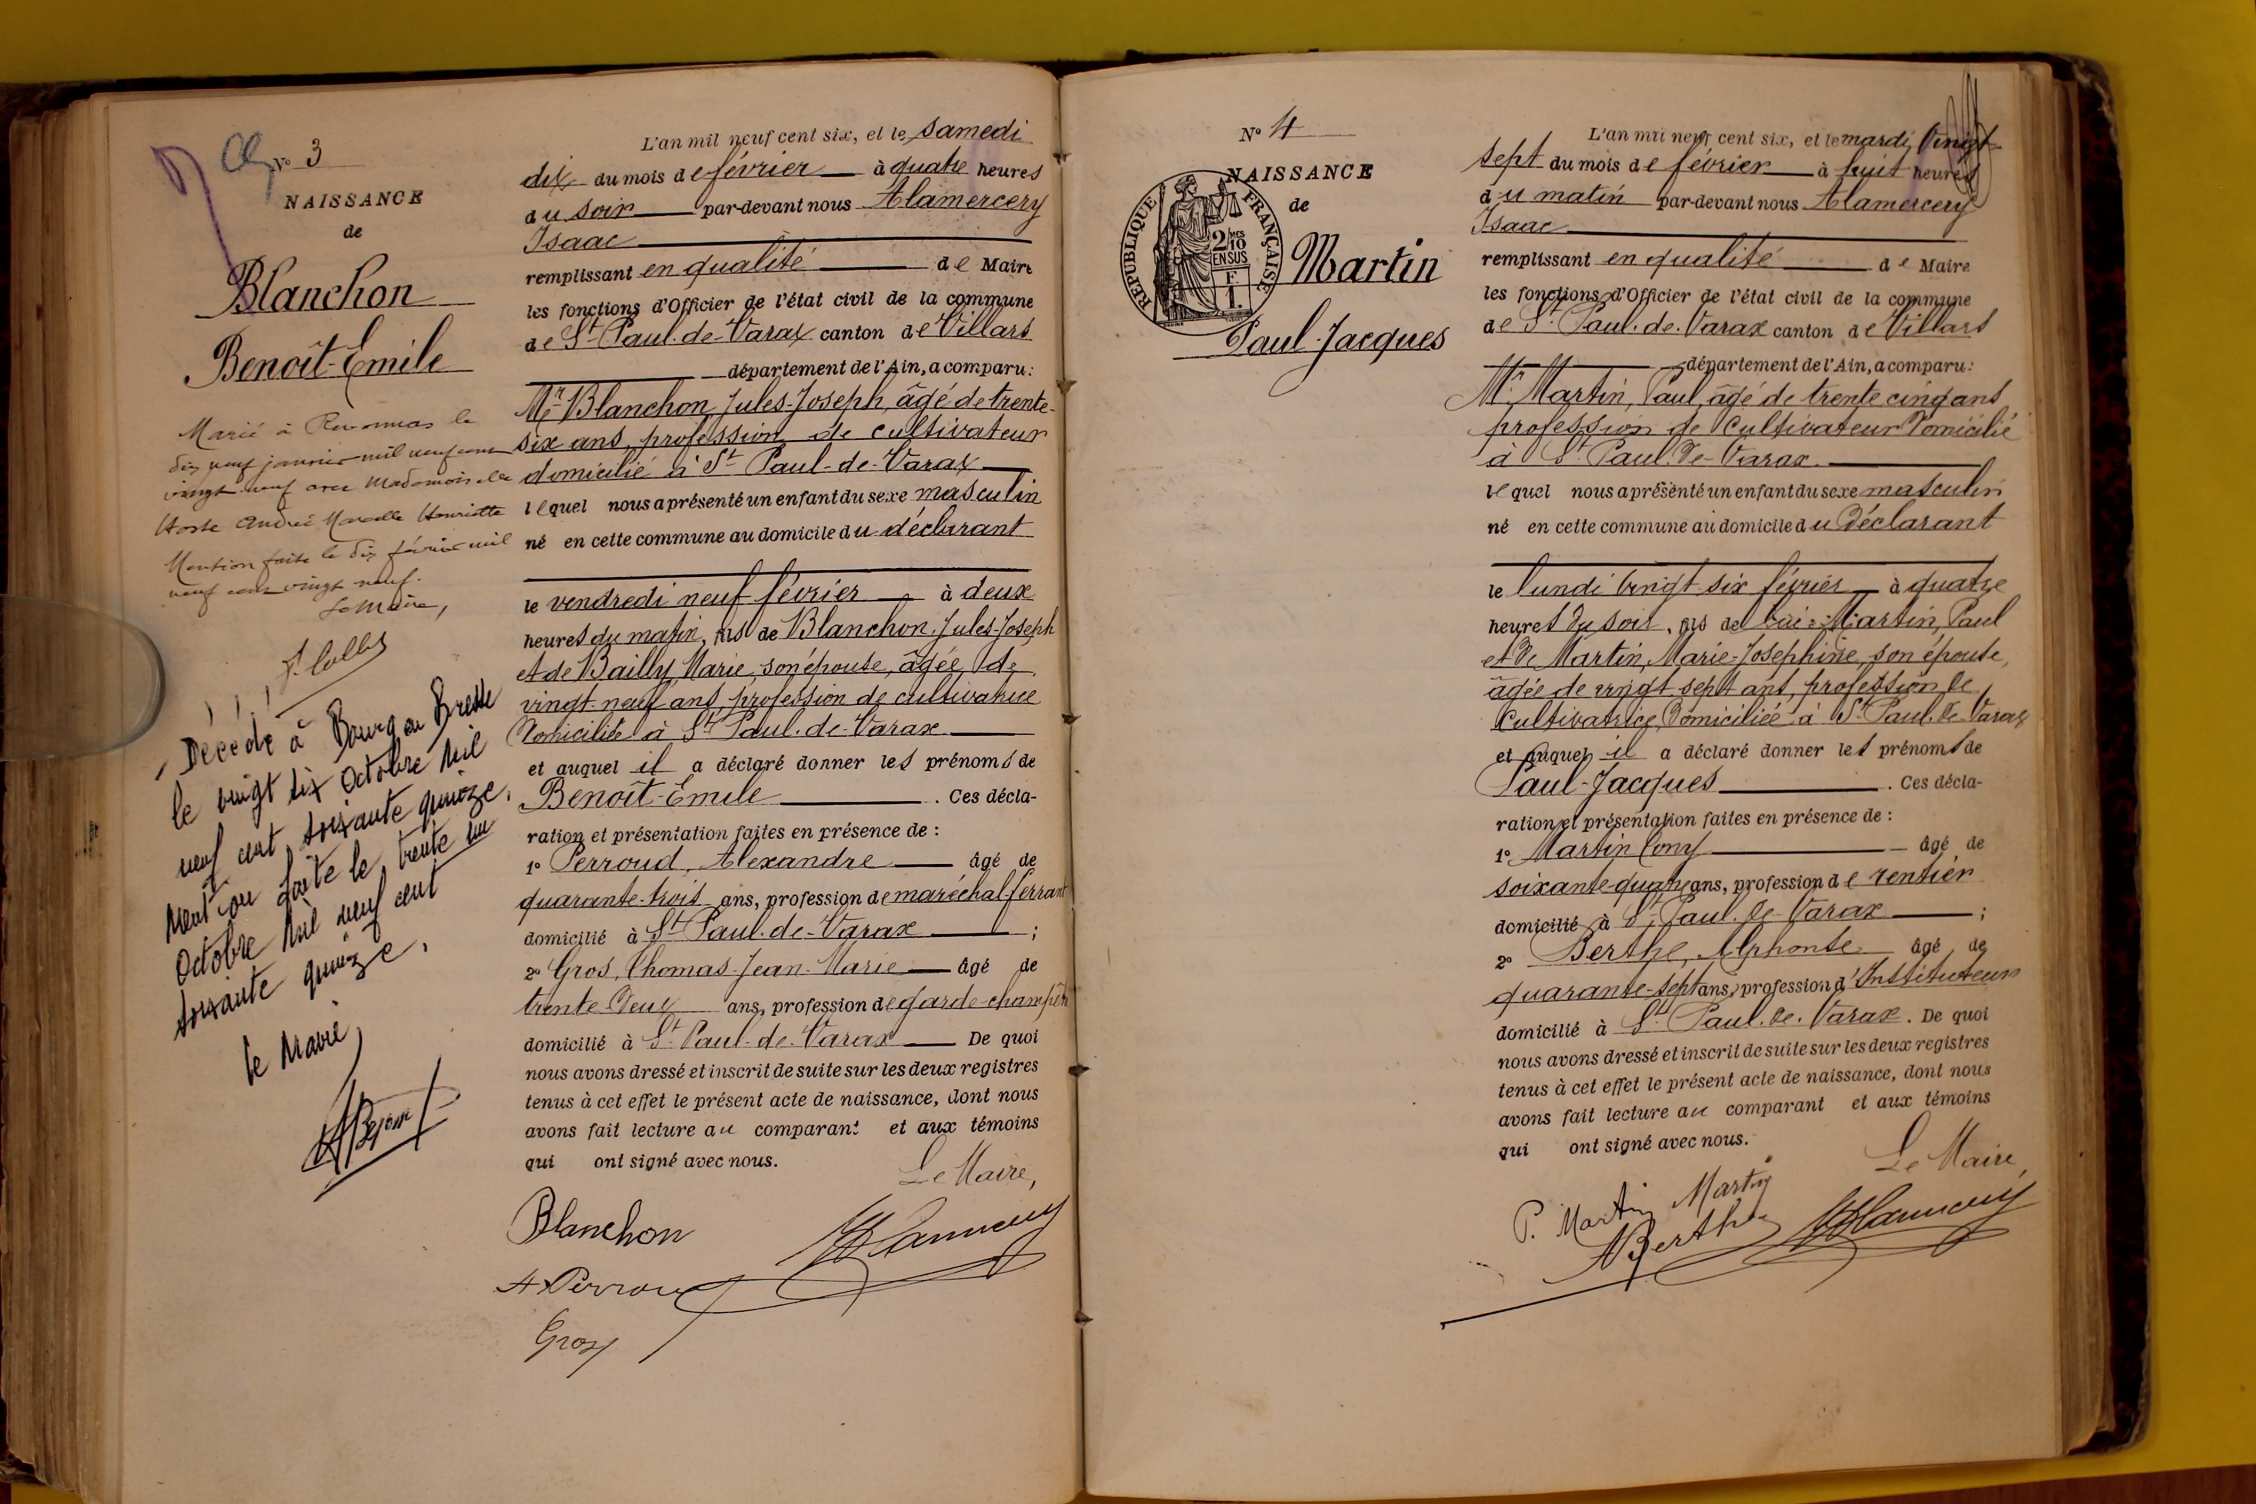 N° 3
NAISSANCE
de
Blanchon
Benoît-Emile
Marié à Revonnas le
dix neuf janvier mil neuf cent
vingt-neuf avec Mademoiselle
Hoste Andrée Marcelle Henriette
Mention faite le dix février mil
neuf cent vingt neuf.
Le Maire,
Décédé à Bourg en Bresse
le vingt six octobre mil
neuf cent soixante quinze.
Mention faite le trente un
octobre mil neuf cent
soixante quinze.
le Maire,
L'an mil neuf cent six, et le samedi
dix du mois de février à quatre heures
du soir par-devant nous Alamercery
Isaac
remplissant en qualité de Maire
les fonctions d'Officier de l'état civil de la commune
de St Paul-de-Varax canton de Villars
département de l'Ain, a comparu:
Mr Blanchon, Jules-Joseph, âgé de trente-
six ans, profession de cultivateur
domicilié à St Paul-de-Varax
lequel nous a présenté un enfant du sexe masculin
né en cette commune au domicile du déclarant
le vendredi neuf février à deux
heures du matin, fils de Blanchon Jules-Joseph
et de Bailly Marie, son épouse, âgée de
vingt-neuf ans, profession de cultivatrice
domiciliée à St Paul-de-Varax
et auquel il a déclaré donner les prénoms de
Benoît-Emile . Ces décla-
ration et présentation faites en présence de :
1° Perroud, Alexandre âgé de
quarante-trois ans, profession de maréchal-ferrant
domicilié à St Paul-de-Varax ;
2° Gros, Thomas-Jean-Marie âgé de
trente-deux ans, profession de garde-champêtre
domicilié à St Paul-de-Varax De quoi
nous avons dressé et inscrit de suite sur les deux registres
tenus à cet effet le présent acte de naissance, dont nous
avons fait lecture au comparant et aux témoins
qui ont signé avec nous.
Le Maire,
Blanchon
A Perroud
Gros
N° 4
NAISSANCE
de
RÉPUBLIQUE FRANÇAISE
2/10 EN SUS
F
1.
Martin
Paul-Jacques
L'an mil neuf cent six, et le mardi vingt-
sept du mois de février à huit heures
du matin par-devant nous Alamercery
Isaac
remplissant en qualité de Maire
les fonctions d'Officier de l'état civil de la commune
de St Paul-de-Varax canton de Villars
département de l'Ain, a comparu:
Mr Martin, Paul, âgé de trente cinq ans,
profession de cultivateur domicilié
à St Paul-de-Varax
lequel nous a présenté un enfant du sexe masculin
né en cette commune au domicile du déclarant
le lundi vingt-six février à quatre
heures du soir, fils de lui : Martin, Paul
et de Martin, Marie-Joséphine, son épouse,
âgée de vingt-sept ans, profession de
cultivatrice, domiciliée à St Paul-de-Varax
et auquel il a déclaré donner les prénoms de
Paul-Jacques . Ces décla-
ration et présentation faites en présence de :
1° Martin Cony âgé de
soixante-quatre ans, profession de rentier
domicilié à St Paul-de-Varax ;
2° Berthe, Alphonse âgé de
quarante-sept ans, profession d'Instituteur
domicilié à St Paul-de-Varax. De quoi
nous avons dressé et inscrit de suite sur les deux registres
tenus à cet effet le présent acte de naissance, dont nous
avons fait lecture au comparant et aux témoins
qui ont signé avec nous.
Le Maire,
P. Martin Martin
A Berthe